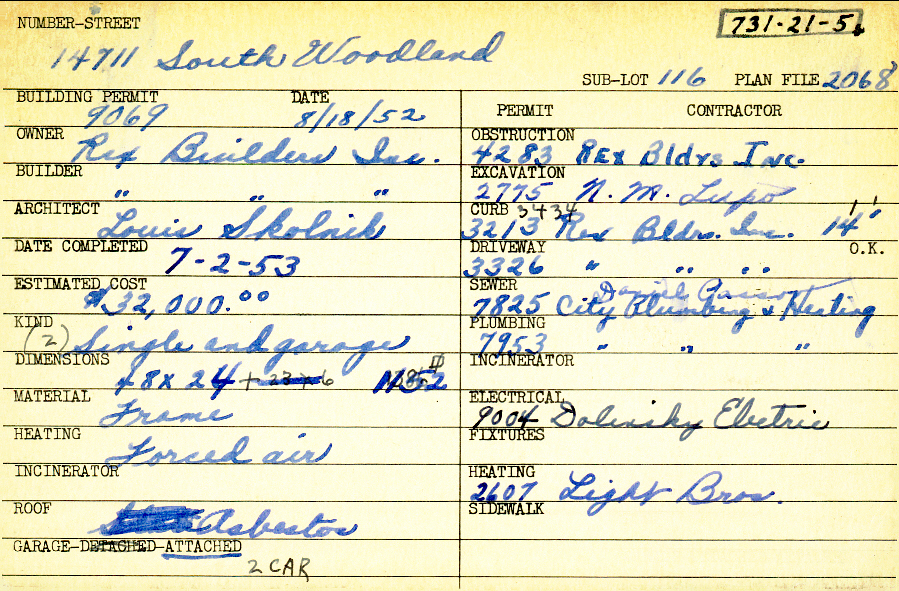 NUMBER-STREET
731-21-5
14711 South Woodland
SUB-LOT 116 PLAN FILE 2068
BUILDING PERMIT DATE
9069 8/18/52
OWNER
Rex Builders Inc.
BUILDER
" " "
ARCHITECT
Louis Skolnik
DATE COMPLETED
7-2-53
ESTIMATED COST
$32,000.00
KIND
(2) Single and garage
DIMENSIONS
48 x 24 +
MATERIAL
Frame
HEATING
Forced air
INCINERATOR
ROOF
Asbestos
GARAGE-DETACHED-ATTACHED
2 CAR
PERMIT CONTRACTOR
OBSTRUCTION
4283 Rex Bldrs Inc.
EXCAVATION
2775 N. M. Lupo
CURB 3434
3213 Rex Bldrs. Inc. 14'
DRIVEWAY O.K.
3326 " " "
SEWER Daniel
7825 City Plumbing & Heating
PLUMBING
7953 " " "
INCINERATOR
ELECTRICAL
9004 Dolinsky Electric
FIXTURES
HEATING
2607 Light Bros.
SIDEWALK